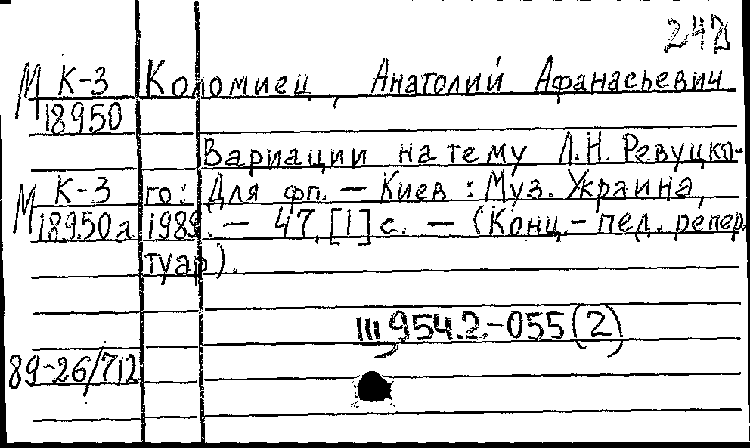 242
М К-3 18950 Коломиец, Анатолий Афанасьевич
Вариации на тему Л.Н. Ревуцко-
М К-3 18950а го: Для фп. — Киев : Муз. Украина,
1989. — 47, [1] с. — (Конц.-пед. репер
туар).
Ш,954.2.-055(2)
89-26/712